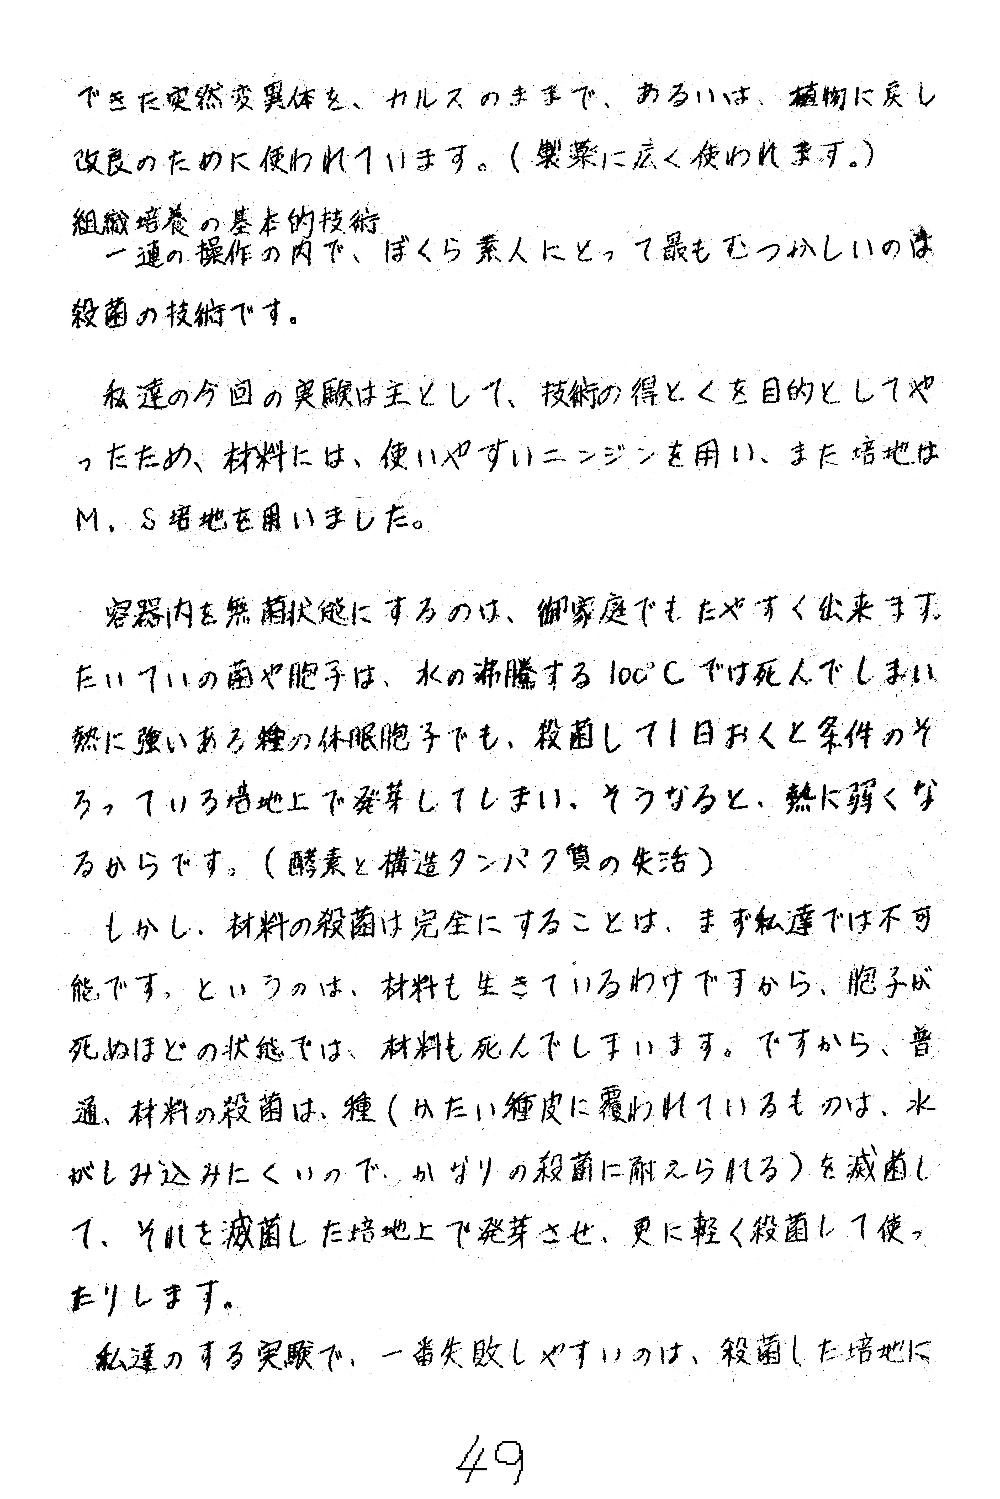 できた突然変異体を、カルスのままで、あるいは、植物に戻し
改良のために使われています。(製薬に広く使われます。)
組織培養の基本的技術
一連の操作の内で、ぼくら素人にとって最もむつかしいのは
殺菌の技術です。
私達の今回の実験は主として、技術の得とくを目的としてや
ったため、材料には、使いやすいニンジンを用い、また培地は
M.S培地を用いました。
容器内を無菌状態にするのは、御家庭でもたやすく出来ます。
たいていの菌や胞子は、水の沸騰する100℃では死んでしまい
熱に強いある種の休眠胞子でも、殺菌して1日おくと条件のそ
ろっている培地上で発芽してしまい、そうなると、熱に弱くな
るからです。(酵素と構造タンパク質の失活)
しかし、材料の殺菌は完全にすることは、まず私達では不可
能です。というのは、材料も生きているわけですから、胞子が
死ぬほどの状態では、材料も死んでしまいます。ですから、普
通、材料の殺菌は、種(かたい種皮に覆われているものは、水
がしみ込みにくいので、かなりの殺菌に耐えられる)を滅菌し
て、それを滅菌した培地上で発芽させ、更に軽く殺菌して使っ
たりします。
私達のする実験で、一番失敗しやすいのは、殺菌した培地に
49